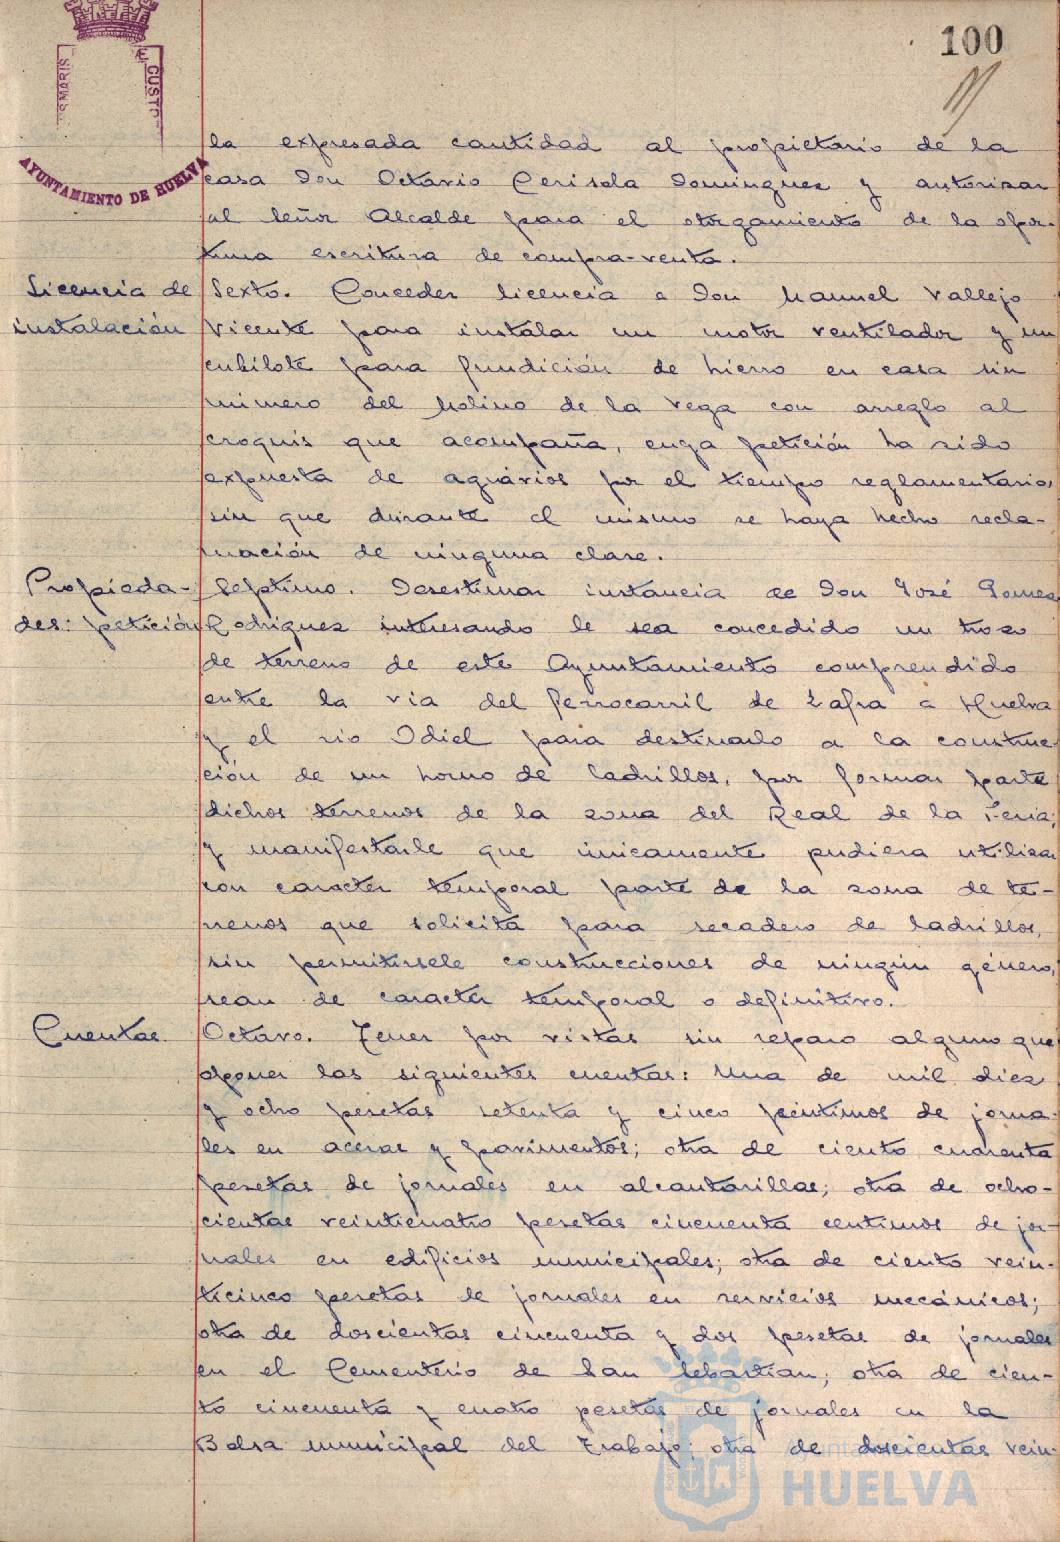 100
MARIS
Æ CUSTO
AYUNTAMIENTO DE HUELVA
la expresada cantidad al propietario de la
casa Don Octavio Cerisola Dominguez y autorizar
al Señor Alcalde para el otorgamiento de la opor-
tuna escritura de compra-venta.
Licencia de
instalación
Sexto. Conceder licencia a Don Manuel Vallejo
Vicente para instalar un motor ventilador y un
cubilote para fundición de hierro en casa sin
número del Molino de la Vega con arreglo al
croquis que acompaña, cuya petición ha sido
expuesta de agravios por el tiempo reglamentario,
sin que durante el mismo se haya hecho recla-
mación de ninguna clase.
Propieda-
des: petición
Septimo. Desestimar instancia de Don José Gomez
Rodriguez interesando le sea concedido un trozo
de terreno de este Ayuntamiento comprendido
entre la via del ferrocarril de Zafra a Huelva
y el rio Odiel para destinarlo a la construc-
ción de un horno de ladrillos, por formar parte
dichos terrenos de la zona del Real de la Feria;
y manifestarle que únicamente pudiera utilizar
con caracter temporal parte de la zona de te-
rrenos que solicita para secadero de ladrillos,
sin permitirsele construcciones de ningún género,
sean de caracter temporal o definitivo.
Cuentas.
Octavo. Tener por vistas sin reparo alguno que
oponer las siguientes cuentas: Una de mil diez
y ocho pesetas setenta y cinco céntimos de jorna-
les en aceras y pavimentos; otra de ciento cuarenta
pesetas de jornales en alcantarillas; otra de ocho-
cientas veinticuatro pesetas cincuenta centimos de jor-
nales en edificios municipales; otra de ciento vein-
ticinco pesetas de jornales en servicios mecánicos;
otra de doscientas cincuenta y dos pesetas de jornales
en el Cementerio de San Sebastian; otra de cien-
to cincuenta y cuatro pesetas de jornales en la
Bolsa municipal del Trabajo; otra de doscientas vein-
Ayuntamiento
HUELVA